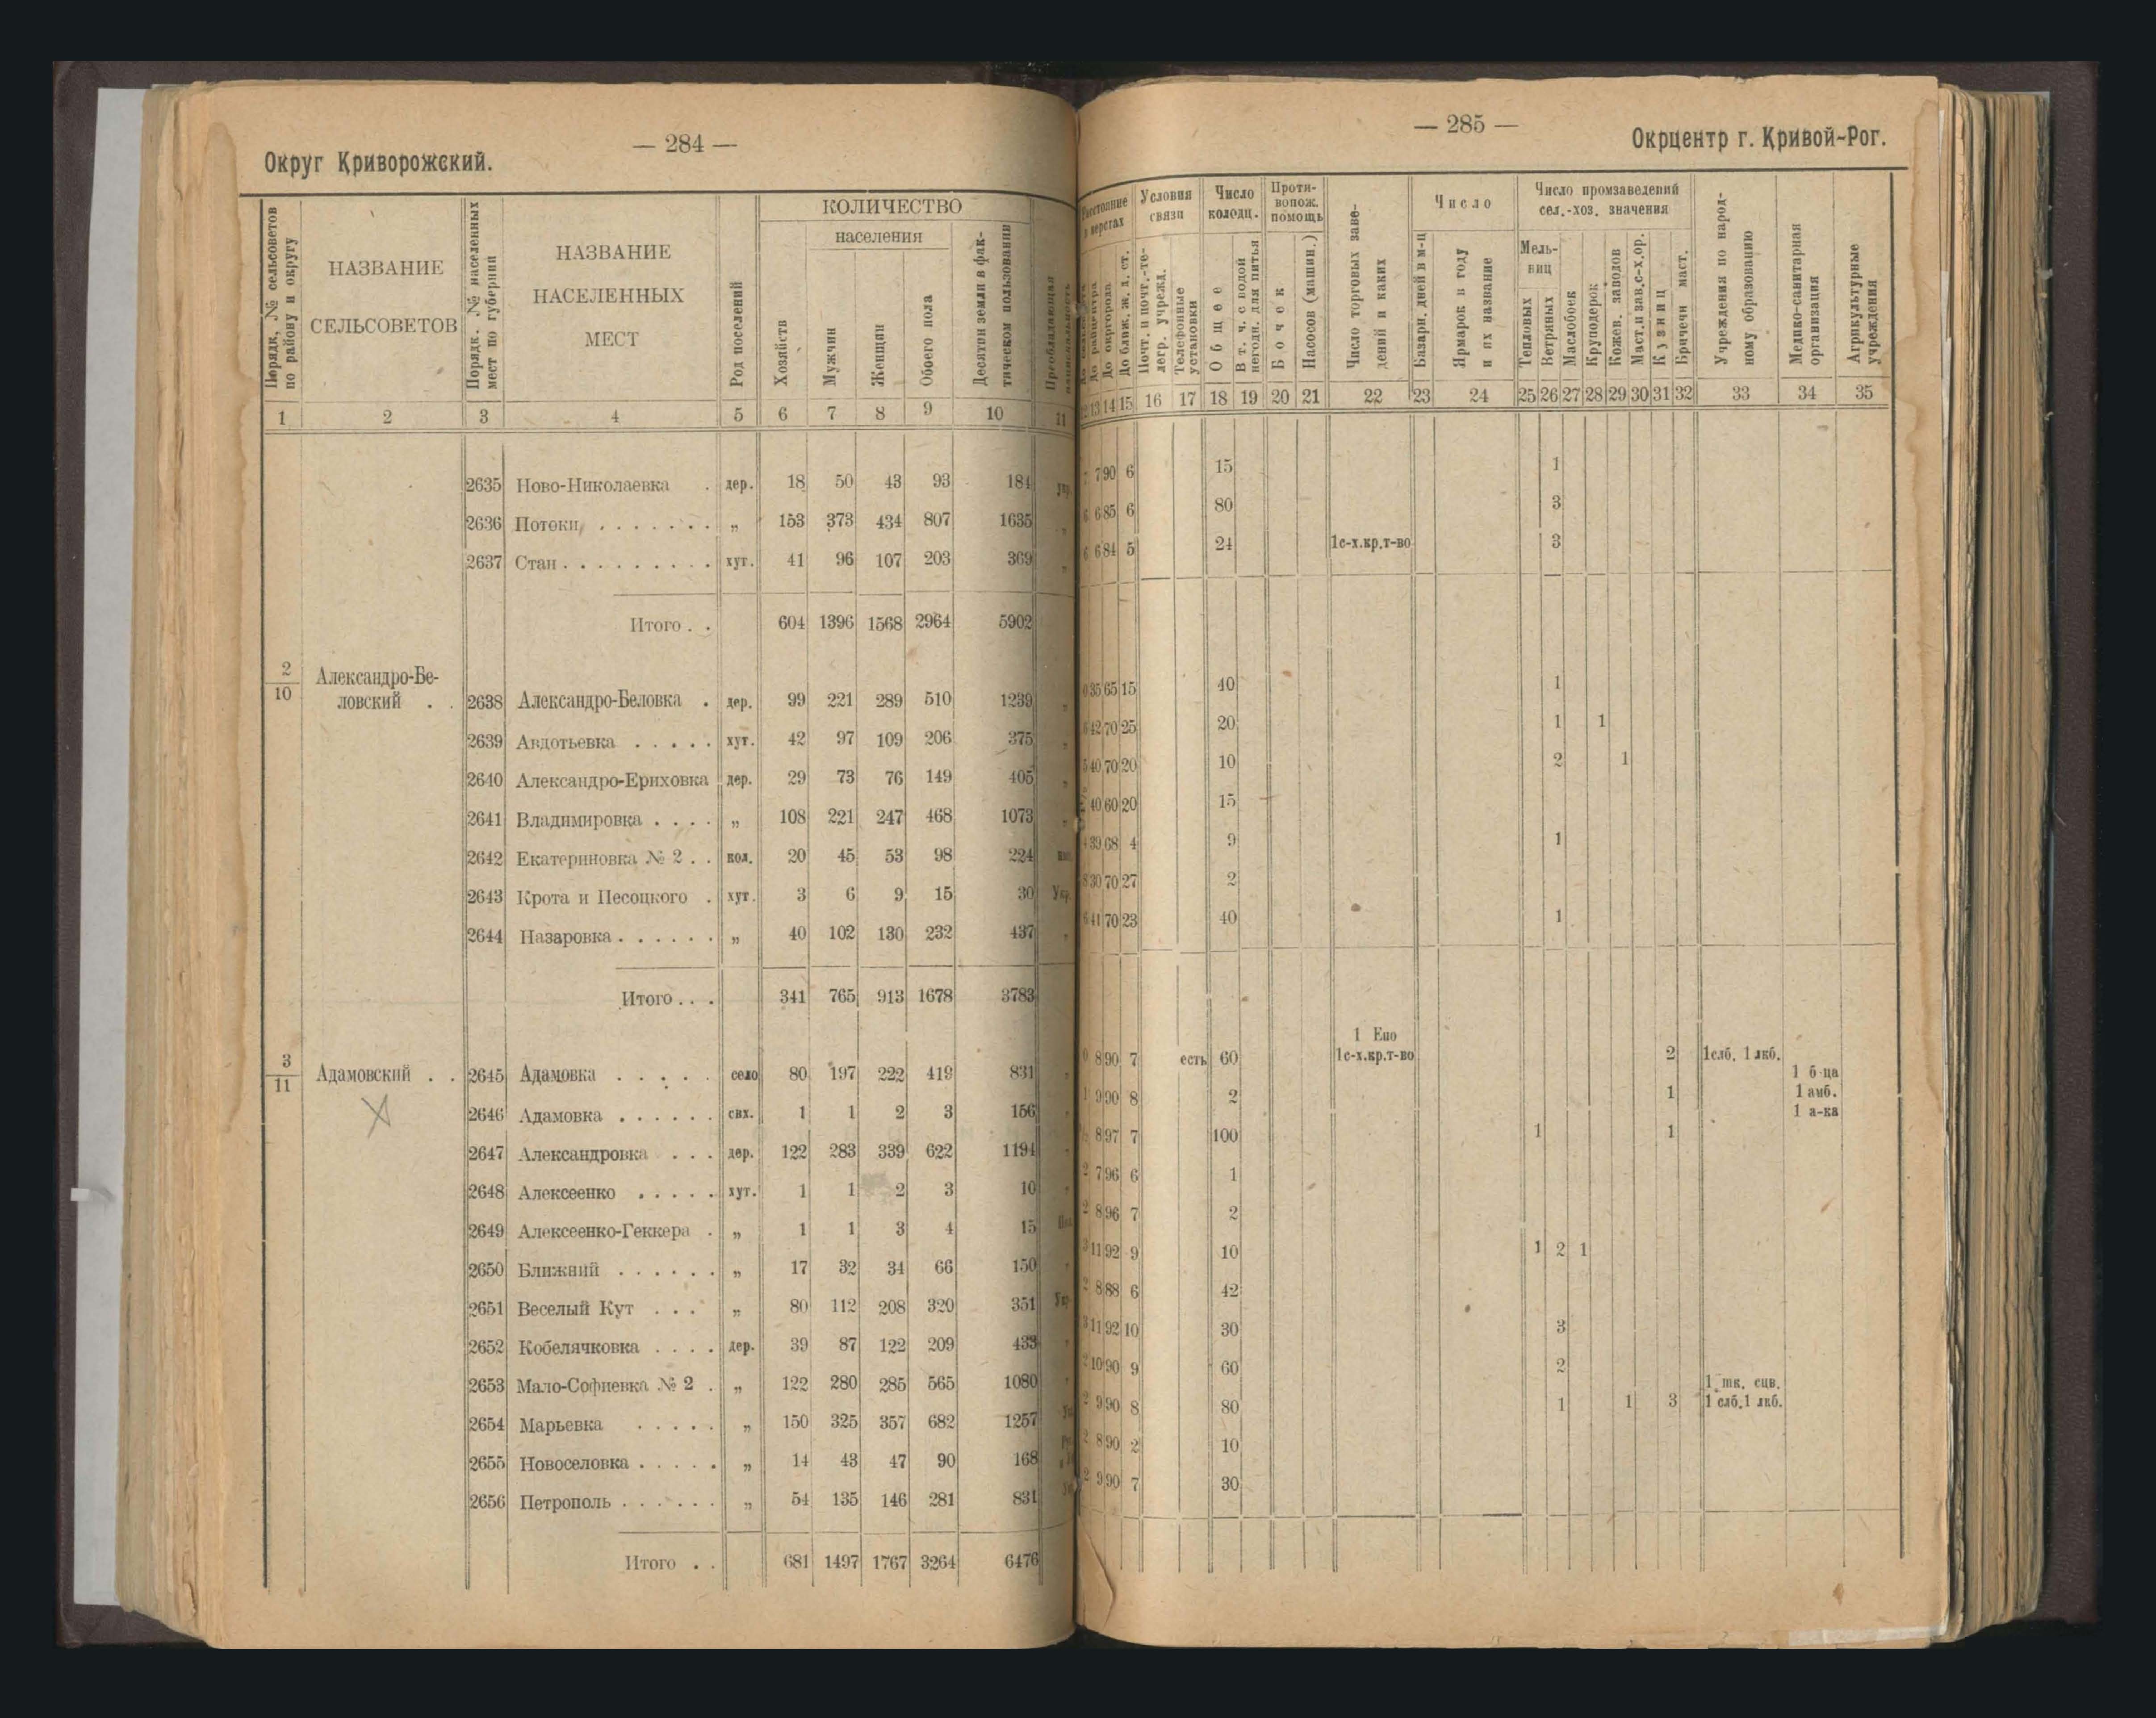 — 284 —
Округ Криворожский.
Порядк. № сельсоветов по району и округу
НАЗВАНИЕ СЕЛЬСОВЕТОВ
Порядк. № населенных мест по губернии
НАЗВАНИЕ НАСЕЛЕННЫХ МЕСТ
Род поселений
КОЛИЧЕСТВО
населения
Хозяйств
Мужчин
Женщин
Обоего пола
Десятин земли в фактическом пользовании
Преобладающая
1 2 3 4 5 6 7 8 9 10 11
2635 Ново-Николаевка . дер. 18 50 43 93 184 Укр.
2636 Потоки . . . . . . . „ 153 373 434 807 1635 „
2637 Стан . . . . . . . . . хут. 41 96 107 203 369 „
Итого . . 604 1396 1568 2964 5902
2/10 Александро-Беловский . . 2638 Александро-Беловка . дер. 99 221 289 510 1239 „
2639 Авдотьевка . . . . . хут. 42 97 109 206 375 „
2640 Александро-Ериховка дер. 29 73 76 149 405 „
2641 Владимировка . . . . „ 108 221 247 468 1073 „
2642 Екатериновка № 2 . . кол. 20 45 53 98 224
2643 Крота и Песоцкого . хут. 3 6 9 15 30 Укр.
2644 Назаровка . . . . . . „ 40 102 130 232 437 „
Итого . . . 341 765 913 1678 3783
3/11 Адамовский . . 2645 Адамовка . . . . . село 80 197 222 419 831 „
2646 Адамовка . . . . . . свх. 1 1 2 3 156 „
2647 Александровка . . . дер. 122 283 339 622 1194 „
2648 Алексеенко . . . . . хут. 1 1 2 3 10 „
2649 Алексеенко-Геккера . „ 1 1 3 4 15
2650 Ближний . . . . . . „ 17 32 34 66 150 „
2651 Веселый Кут . . . „ 80 112 208 320 351 Укр.
2652 Кобелячковка . . . . дер. 39 87 122 209 433 „
2653 Мало-Софиевка № 2 . „ 122 280 285 565 1080 „
2654 Марьевка . . . . . „ 150 325 357 682 1257
2655 Новоселовка . . . . . „ 14 43 47 90 168
2656 Петрополь . . . . . . „ 54 135 146 281 831
Итого . . 681 1497 1767 3264 6476
— 285 —
Окрцентр г. Кривой-Рог.
Расстояние в верстах
До райцентра
До окргорода
До ближ. ж. д. ст.
Условия связи
Почт. и почт.-телегр. учрежд.
Телефонные установки
Число колодц.
Общее
В т. ч. с водой негодн. для питья
Противопож. помощь
Бочек
Насосов (машин.)
Число торговых заведений и каких
Число
Базарн. дней в м-ц
Ярмарок в году и их название
Число промзаведений сел.-хоз. значения
Мельниц
Тепловых
Ветряных
Маслобоек
Круподерок
Кожев. заводов
Маст. и зав. с-х. ор.
Кузниц
Бричечн маст.
Учреждения по народному образованию
Медико-санитарная организация
Агрикультурные учреждения
13 14 15 16 17 18 19 20 21 22 23 24 25 26 27 28 29 30 31 32 33 34 35
7 90 6 15 1
6 85 6 80 3
6 84 5 24 1с-х.кр.т-во 3
35 65 15 40 1
42 70 25 20 1 1
40 70 20 10 2 1
40 60 20 15
39 68 4 9 1
30 70 27 2
41 70 23 40 1
1 Епо
8 90 7 есть 60 1с-х.кр.т-во 2 1слб. 1 лкб.
1 б-ца
9 90 8 2 1 1 амб.
1 а-ка
8 97 7 100 1 1
7 96 6 1
8 96 7 2
11 92 9 10 1 2 1
8 88 6 42
11 92 10 30 3
10 90 9 60 2
1 шк. сцв.
9 90 8 80 1 1 3 1 слб. 1 лкб.
8 90 2 10
9 90 7 30